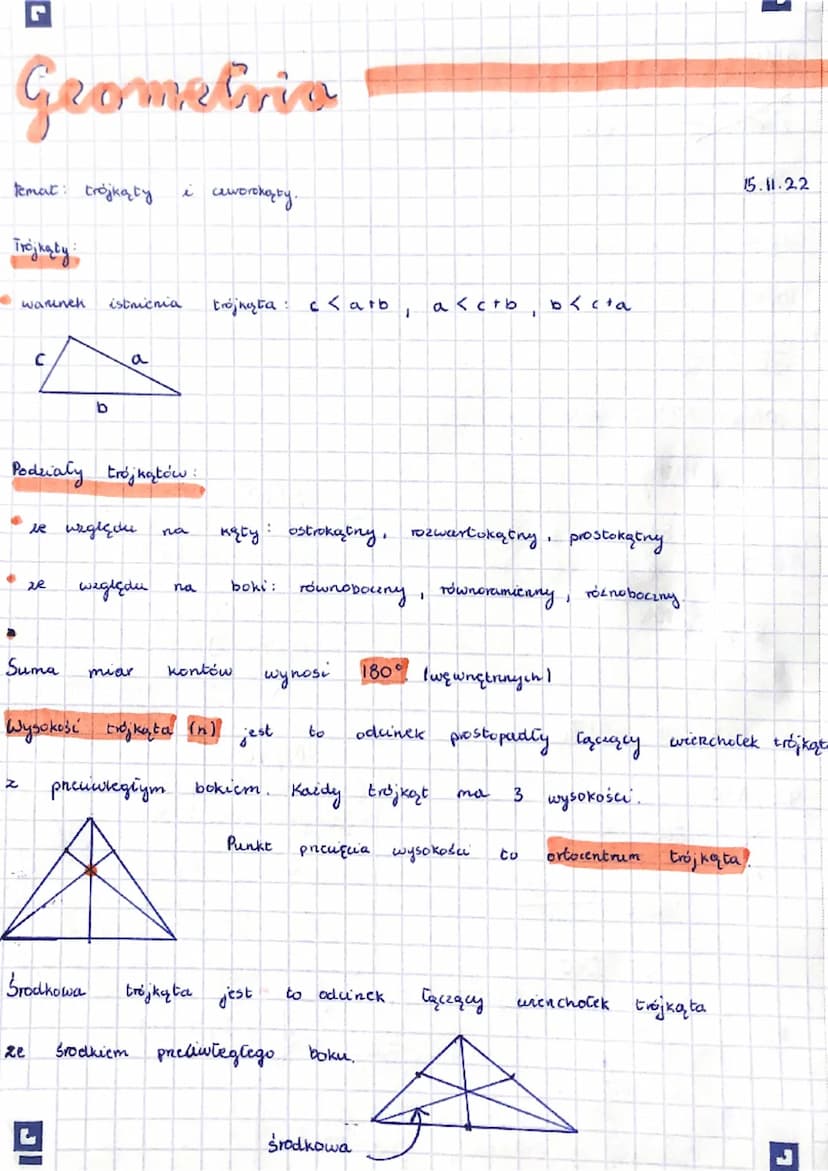 Geometria
temat: trójkąty i czworokąty. 15.11.22
Trójkąty:
• warunek istnienia trójkąta: c < a+b, a < c+b, b < c+a
c a
b
Podziały trójkątów:
• ze względu na kąty: ostrokątny, rozwartokątny, prostokątny
• ze względu na boki: równoboczny, równoramienny, różnoboczny
Suma miar kontów wynosi 180° (wewnętrznych)
Wysokość trójkąta (h) jest to odcinek prostopadły łączący wierzchołek trójkąta
z przeciwległym bokiem. Każdy trójkąt ma 3 wysokości.
Punkt przecięcia wysokości to ortocentrum trójkąta.
Środkowa trójkąta jest to odcinek łączący wierzchołek trójkąta
ze środkiem przeciwległego boku.
środkowa